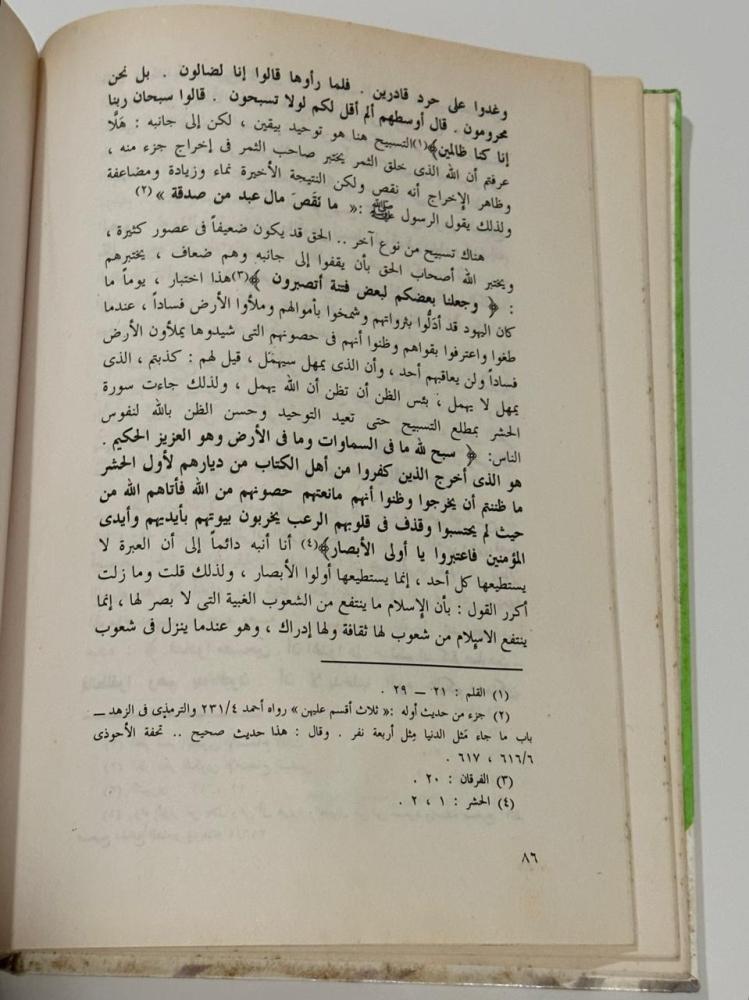 وغدوا على حرد قادرين . فلما رأوها قالوا إنا لضالون . بل نحن
محرومون . قال أوسطهم ألم أقل لكم لولا تسبحون . قالوا سبحان ربنا
إنا كنا ظالمين﴾(١)التسبيح هنا هو توحيد بيقين ، لكن إلى جانبه : هَلَّا
عرفتم أن الله الذى خلق الثمر يختبر صاحب الثمر فى إخراج جزء منه ،
وظاهر الإخراج أنه نقص ولكن النتيجة الأخيرة نماء وزيادة ومضاعفة
ولذلك يقول الرسول ﷺ :« ما نَقَصَ مال عبد من صدقة »(٢)
هناك تسبيح من نوع آخر .. الحق قد يكون ضعيفاً فى عصور كثيرة ،
ويختبر الله أصحاب الحق بأن يقفوا إلى جانبه وهم ضعاف ، يختبرهم
: ﴿ وجعلنا بعضكم لبعض فتنة أتصبرون ﴾(٣)هذا اختبار ، يوماً ما
كان اليهود قد أدَلُّوا بثرواتهم وشمخوا بأموالهم وملأوا الأرض فساداً ، عندما
طغوا واعترفوا بقواهم وظنوا أنهم فى حصونهم التى شيدوها يملأون الأرض
فساداً ولن يعاقبهم أحد ، وأن الذى يمهل سيهمَل ، قيل لهم : كذبتم ، الذى
يمهل لا يهمل ، بئس الظن أن تظن أن الله يهمل ، ولذلك جاءت سورة
الحشر بمطلع التسبيح حتى تعيد التوحيد وحسن الظن بالله لنفوس
الناس: ﴿ سبح لله ما فى السماوات وما فى الأرض وهو العزيز الحكيم .
هو الذى أخرج الذين كفروا من أهل الكتاب من ديارهم لأول الحشر
ما ظننتم أن يخرجوا وظنوا أنهم مانعتهم حصونهم من الله فأتاهم الله من
حيث لم يحتسبوا وقذف فى قلوبهم الرعب يخربون بيوتهم بأيديهم وأيدى
المؤمنين فاعتبروا يا أولى الأبصار﴾(٤) أنا أنبه دائماً إلى أن العبرة لا
يستطيعها كل أحد ، إنما يستطيعها أولوا الأبصار ، ولذلك قلت وما زلت
أكرر القول : بأن الإسلام ما ينتفع من الشعوب الغبية التى لا بصر لها ، إنما
ينتفع الاسلام من شعوب لها ثقافة ولها إدراك ، وهو عندما ينزل فى شعوب
(١) القلم : ٢١ — ٢٩ .
(٢) جزء من حديث أوله :« ثلاث أقسم عليهن » رواه أحمد ٢٣١/٤ والترمذى فى الزهد —
باب ما جاء مَثل الدنيا مِثل أربعة نفر . وقال : هذا حديث صحيح .. تحفة الأحوذى
٦١٦/٦ ، ٦١٧ .
(٣) الفرقان : ٢٠ .
(٤) الحشر : ١ ، ٢ .
٨٦